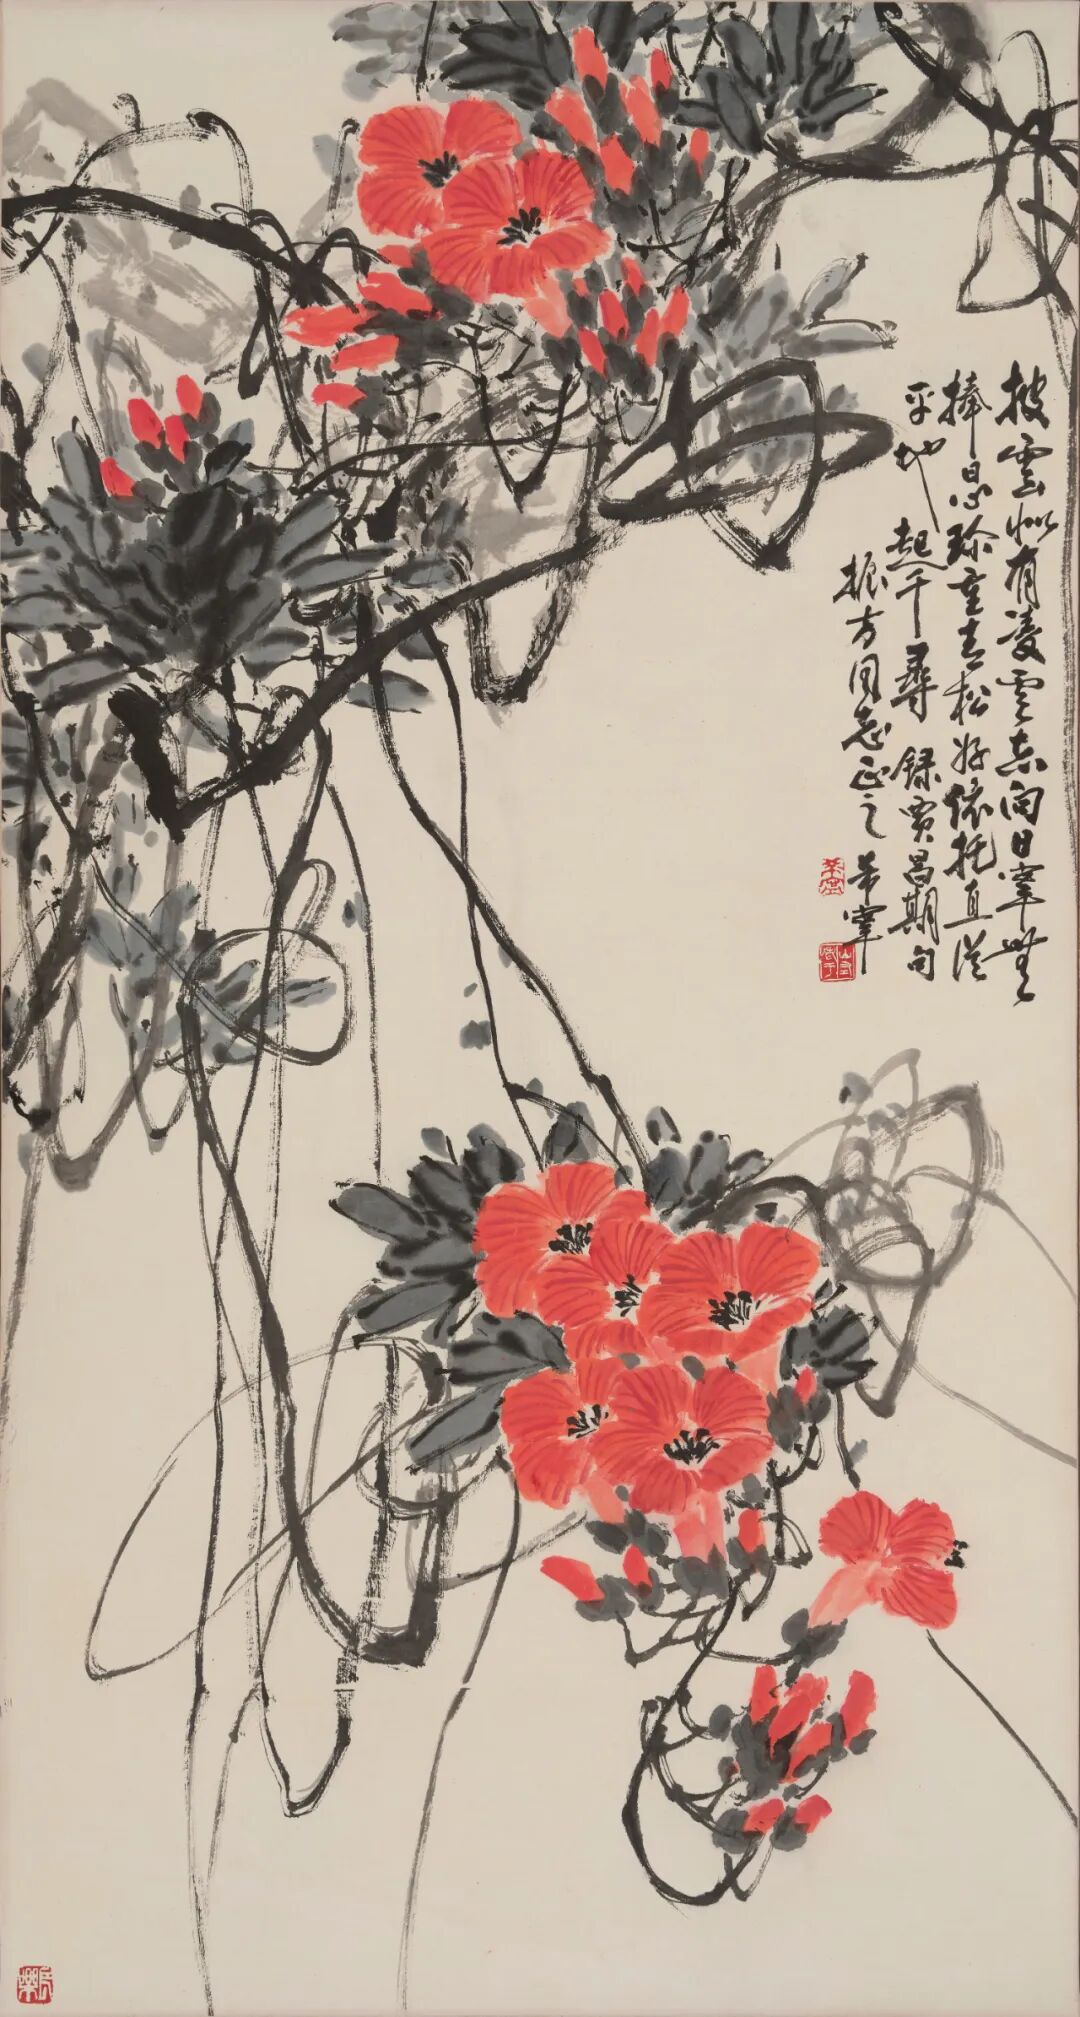 披雲似有凌霄志向日寧無
捧日心珍重青松好依托直從
平地起千尋 録賈昌期句
振方同志正之 希寧
希寧